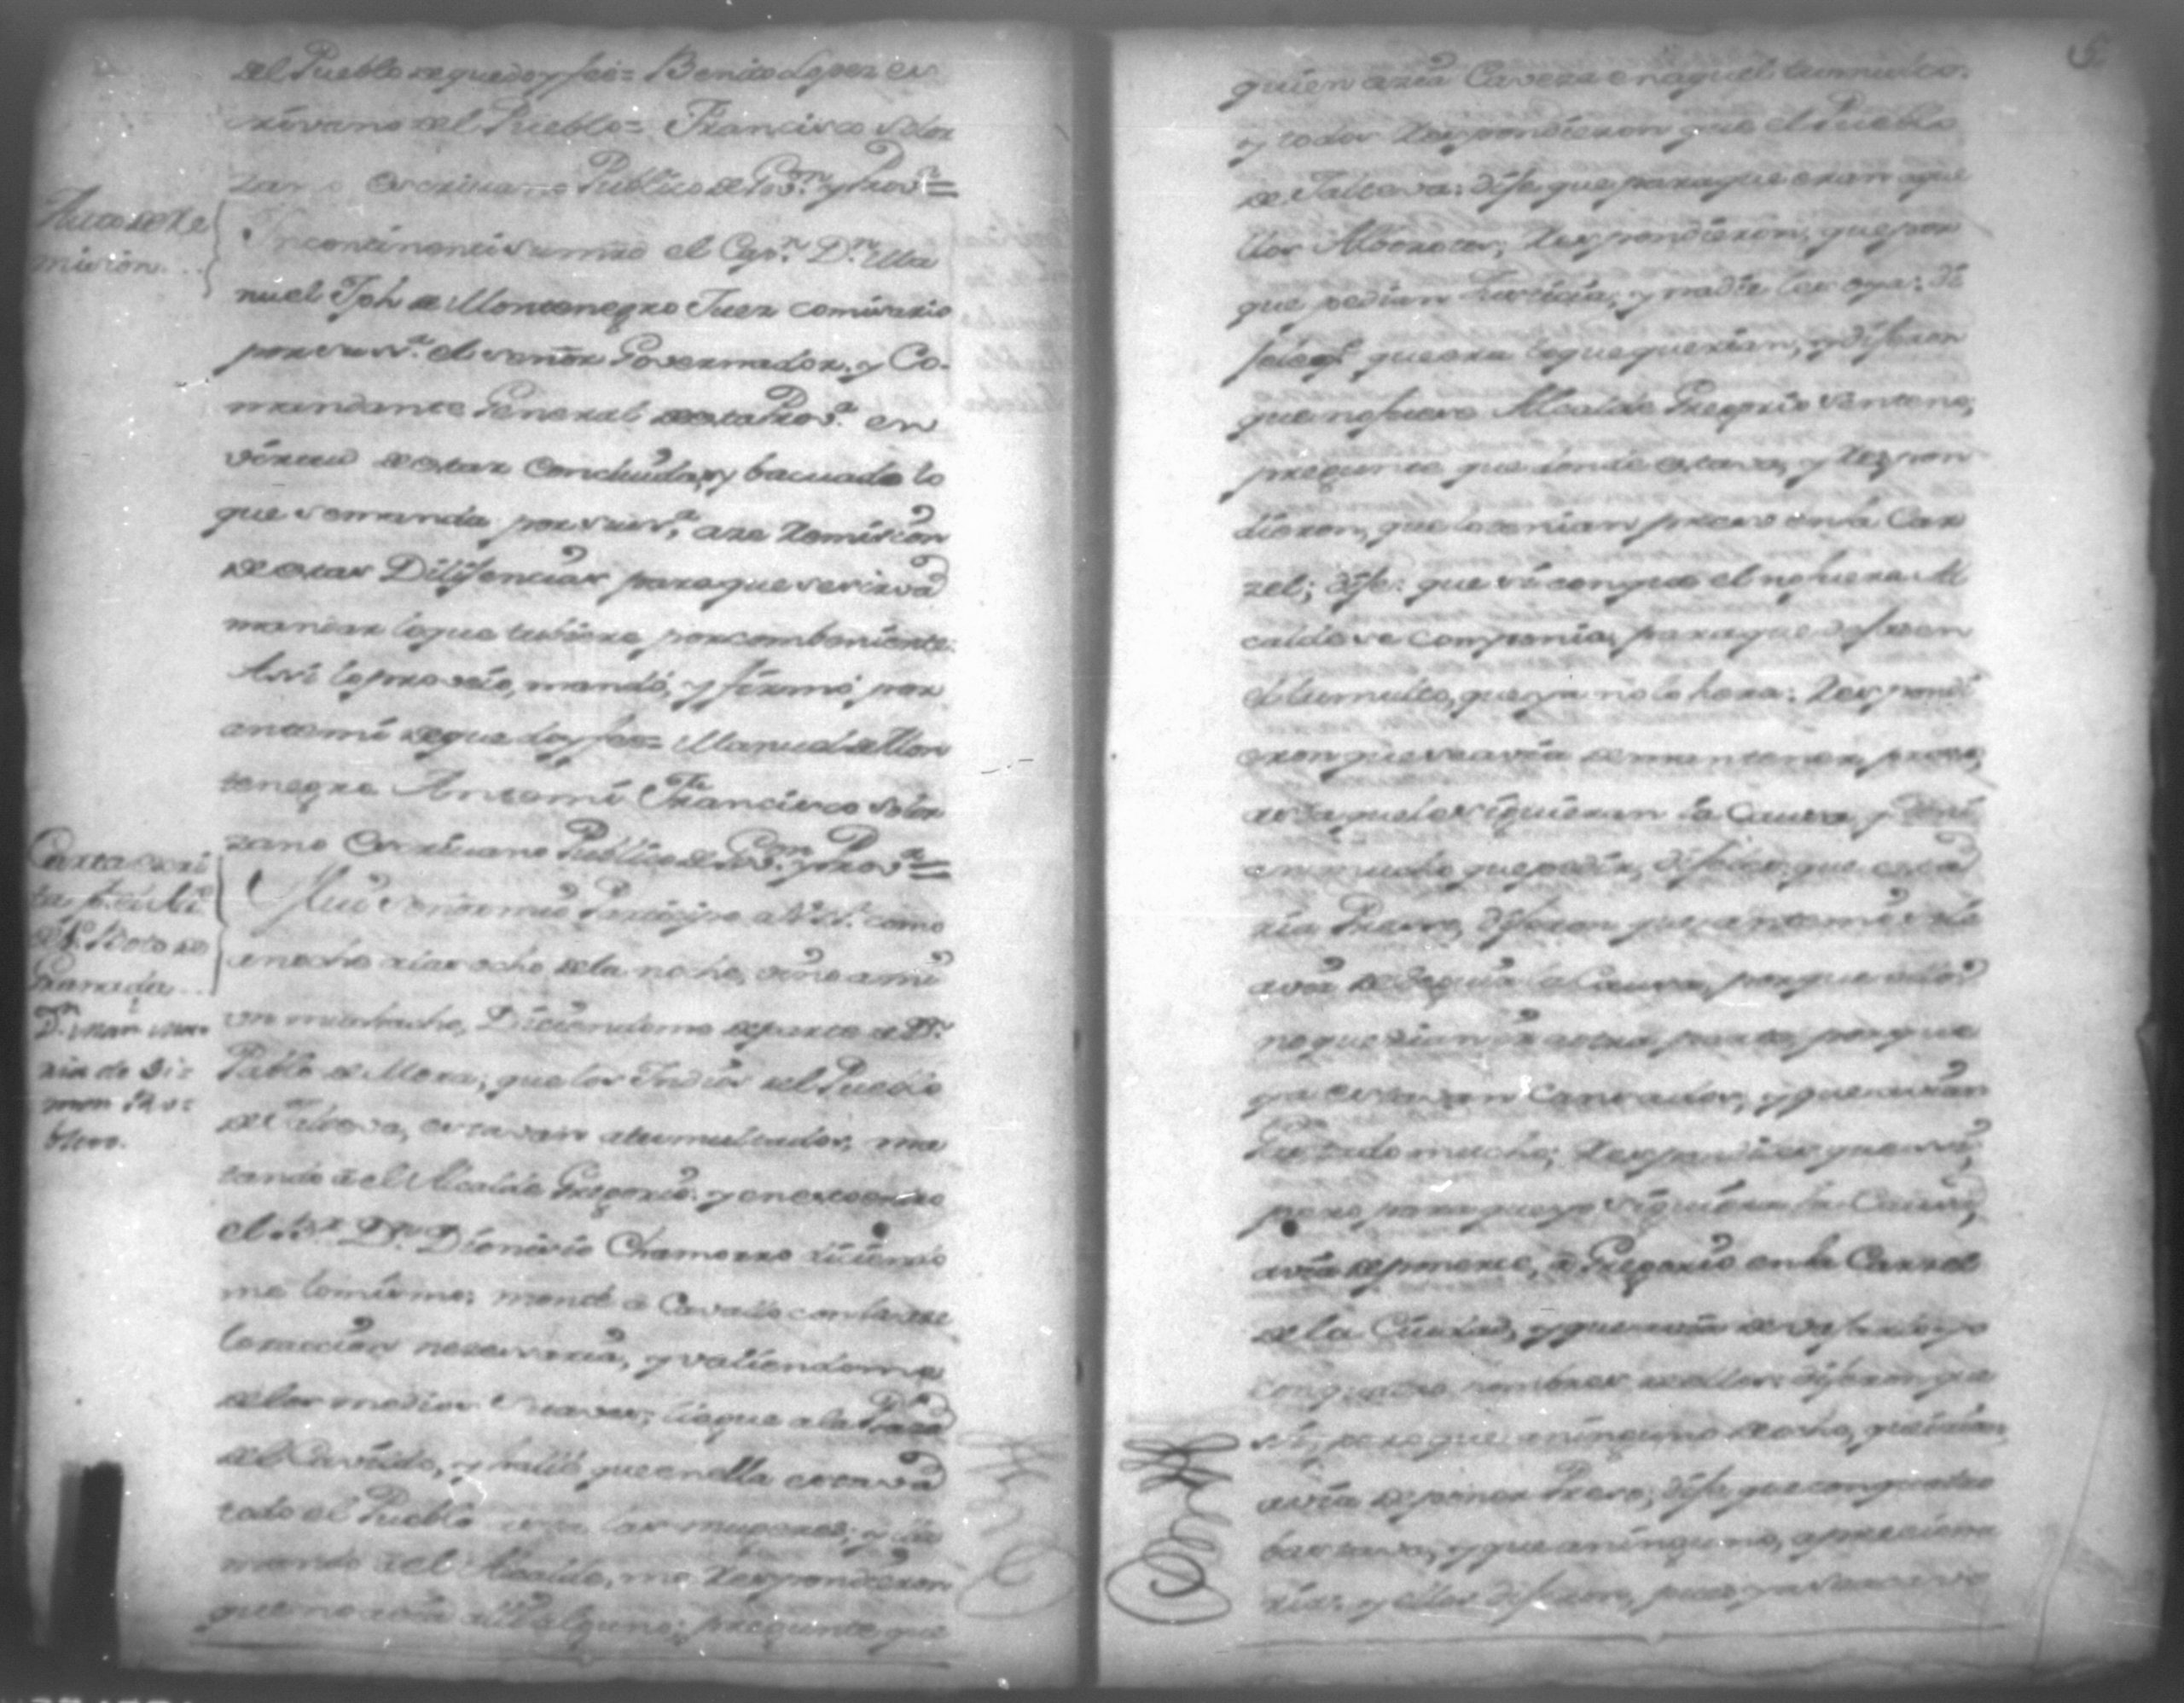 del Pueblo de que doy fee= Benito Lopez es
crivano del Pueblo= Francisco Solor
zano Escrivano Publico de Gov.n y Prov.a=
Auto de Re
mision...
Incontinenti su mrd el Cap.n D.n Ma
nuel Jph de Montenegro Juez comisario
por su s.a el señor Governador, y Co-
mandante General de esta Prov.a en
virtud de estar concluida, y bacuado lo
que se manda por su s.a, aze remisión
de estas Dilijencias para que se sirva
mandar lo que tubiere por combeniente.
Assi lo proveio, mandó, y firmó por
antemi de que doy fee= Manuel de Mon
tenegro Antemi Francisco Solor
zano Escrivano Publico de Gov.on y Prov.a=
Carta escri
Granada...
D.n
ria de Di=
Mui señor mio Participo a V.S. como
anoche a las ocho de la noche, vino a mi
un muchacho, Diciendome de parte de D.n
Pablo de Mora; que los Indios del Pueblo
de Jalteva, estavan atumultados, ma
tando á el Alcalde Gregorio: y en esto entro
el D.n Dionisio Chamorro diciendo
me lo mismo; monté á Cavallo con la ace
leracción nesesaria, y valiendome
de los medios suaves; llegue a la Plaza
del Cavildo, y hallé que en ella estava
todo el Pueblo las mugeres; y lla
mando á el Alcalde, me respondieron
que no avia alli alguno; pregunte que
5
quien azia Caveza en aquel tumulto.
y todos respondieron que el Pueblo
de Jalteva: dije que para que eran aque
llos Alborotos; respondieron, que por
que pedian Justicia, y nadie los oya: di
jeles que era lo que querian, y dijeron
que no fuese Alcalde Gregorio Senteno;
pregunte que donde estava, y respon
dieron, que lo tenian preso en la Car
zel; dije: que si con que el no fuera Al
calde se componia, para que dejasen
el tumulto, que ya no lo hera: respondi
eron que se avia de mantener preso,
asta que le siguieran la Causa, y
en mucho que pedir, dijeles, que esta
ria Preso, dijeron que antemi se le
avia de seguir la Causa, porque ellos
no querian ir a otra parte, porque
ya estavan cansados, y que avian
gastado mucho; respondiles que si,
pero para que yo siguiera la Causa,
avia de ponerse, á Gregorio en la Carzel
de la Ciudad, y que avia de vajar yo
con quatro hombres, de ellos: dijeron que
si, pero que a ninguno de ocho, que
avia de poner Preso; dije que con quatro
bastava, y que a ninguno, apresiona
ria: y ellos dijeron, pues ya